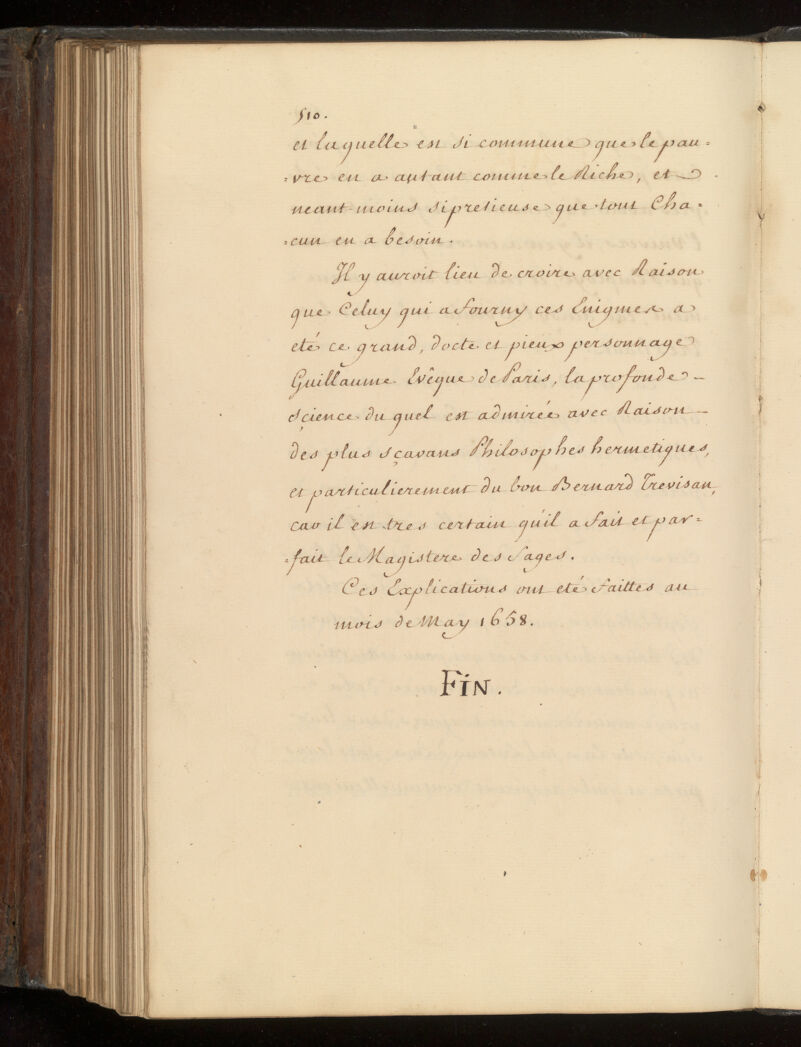 510.
et laquelle est si commune que le pau=
=vre en a autant comme le Riche, et
neant-moins si pretieuse que tout Cha=
=cun en a besoin.
Il y auroit lieu de croire avec Raison
que Celuy qui a fourny ces Enigmes a
eté ce grand, docte et pieux personnage
Guillaume Evêque de Paris, la profonde
science du quel est admirée avec Raison
des plus sçavans Philosophes hermetiques,
et particulierement du bon Bernard Trevisan,
car il est tres certain quil a fait et par=
=fait le Magistere des Sages.
Ces Explications ont eté faittes au
mois de May 1658.
FIN.